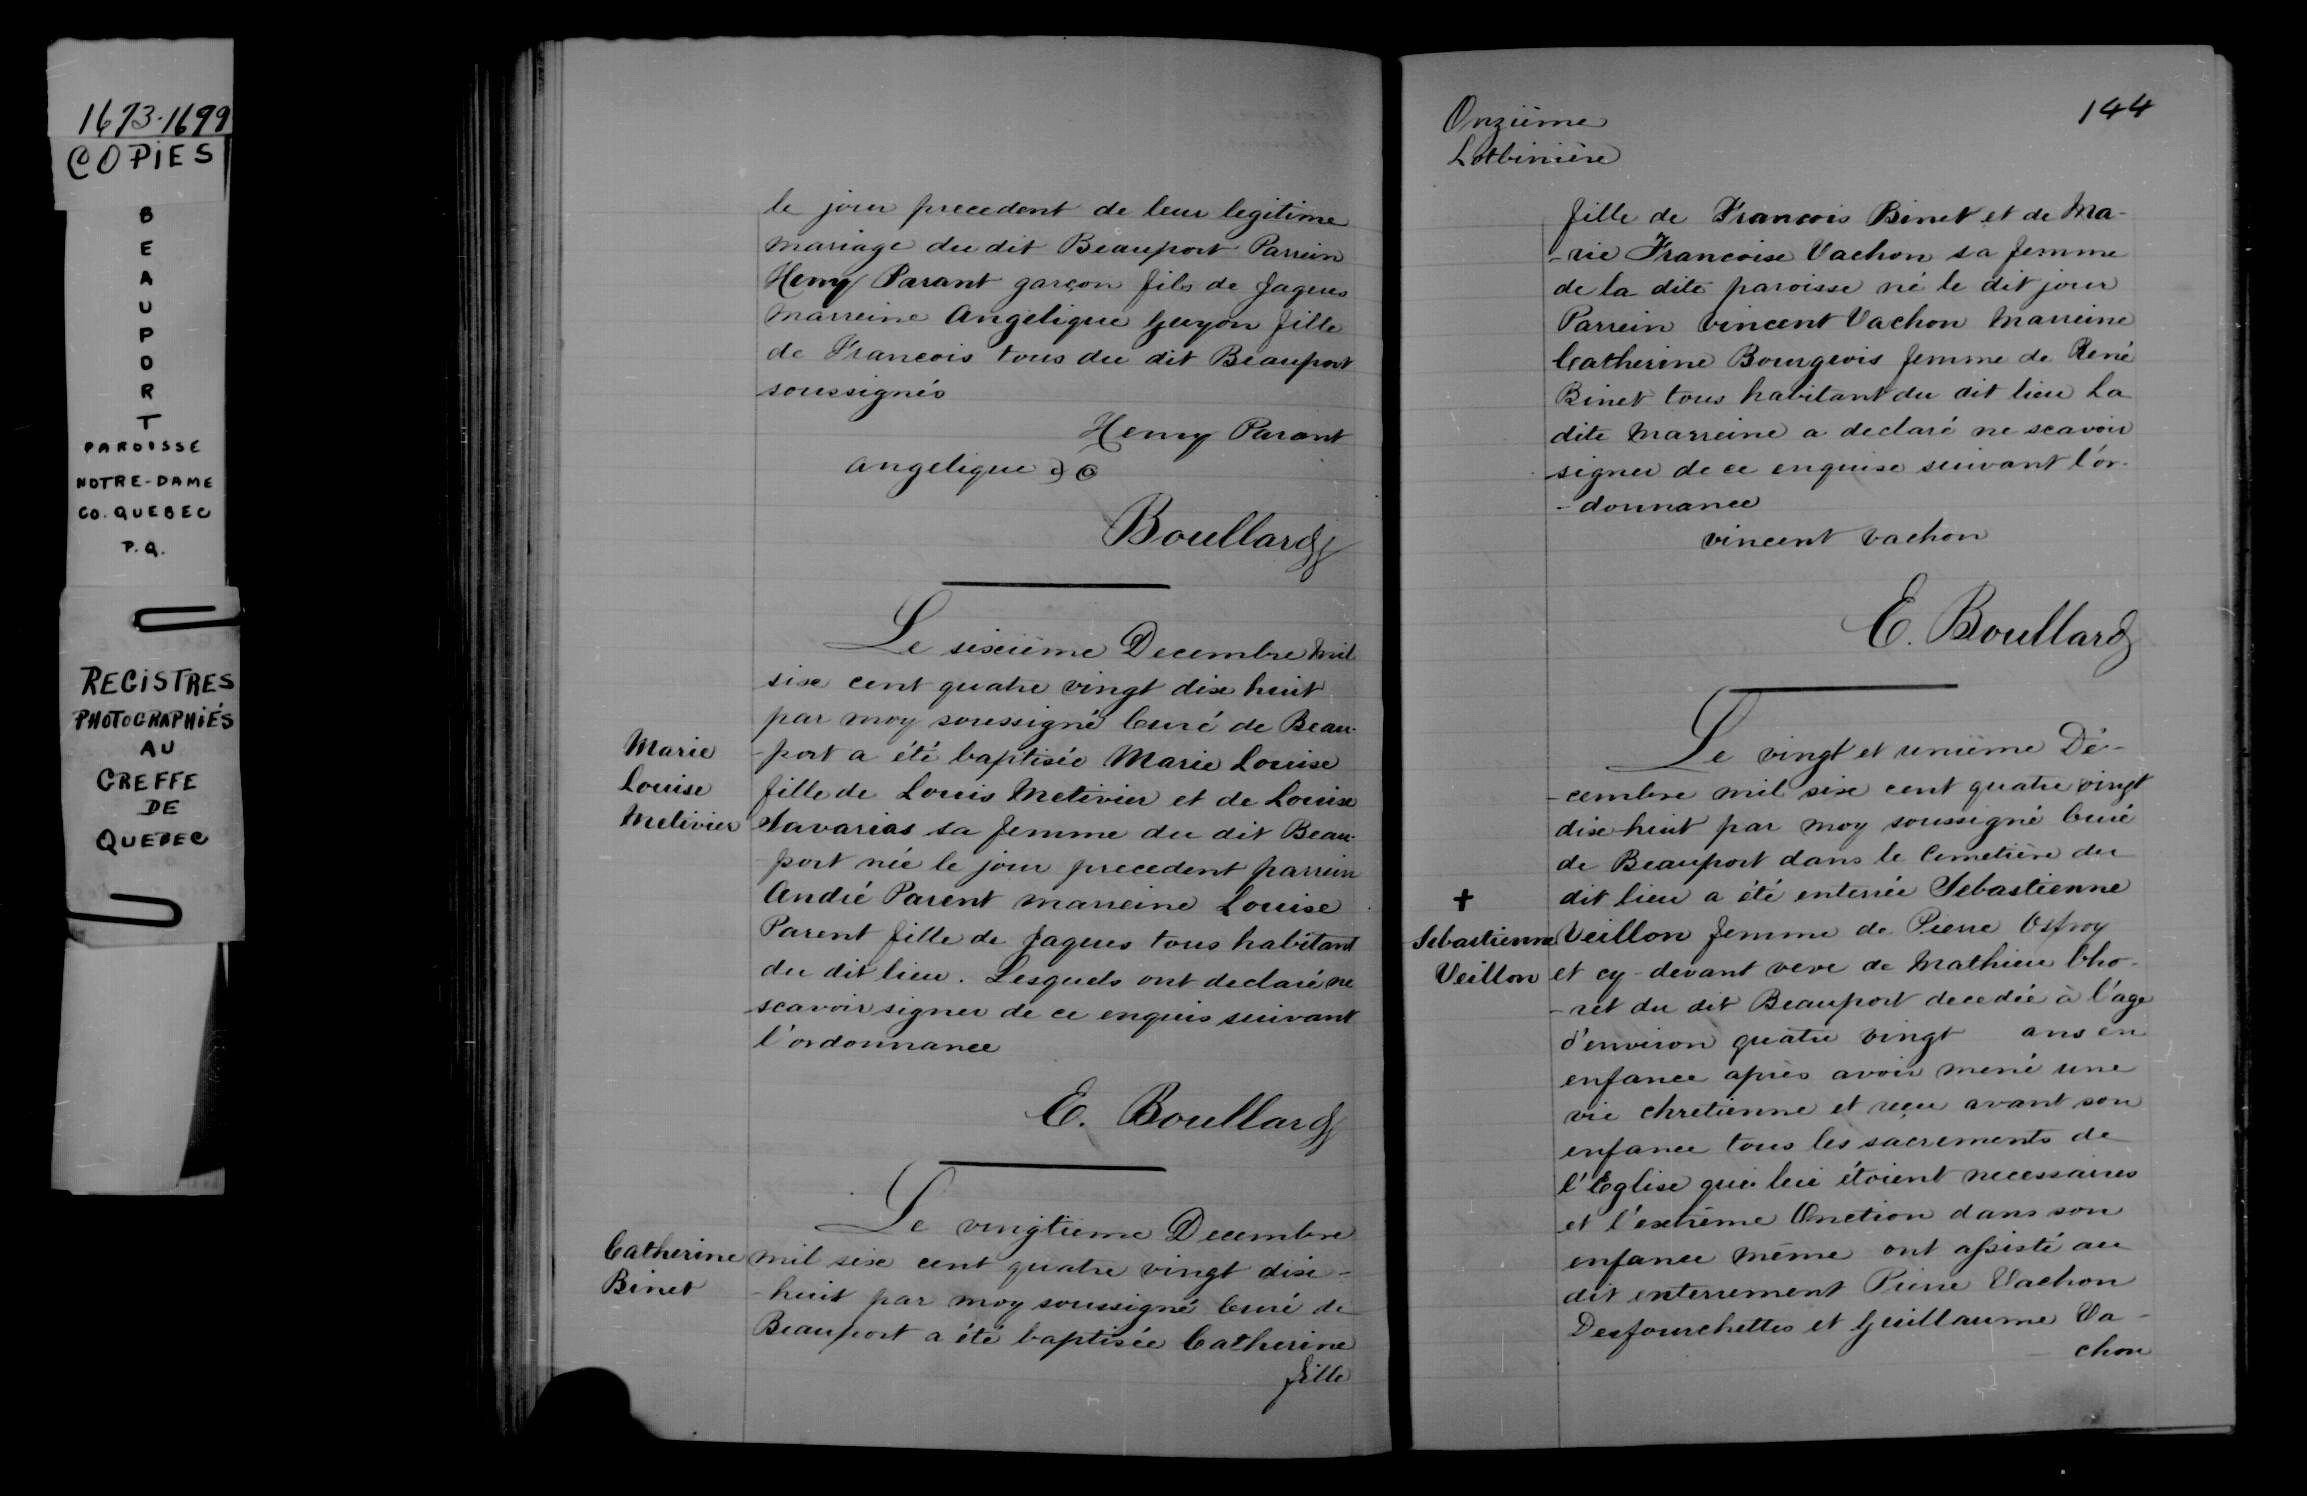 1673-1699
COPIES
BEAUPORT
PAROISSE
NOTRE-DAME
CO. QUEBEC
P.Q.
REGISTRES
PHOTOGRAPHIÉS
AU
GREFFE
DE
QUEBEC
le jour precedent de leur legitime
mariage du dit Beauport Parrein
Henry Parant garçon fils de Jaques
Marreine Angelique Guyon fille
de Francois tous du dit Beauport
soussignés
Henry Parant
angelique
Boullard
Le sixiéme Decembre Mil
six cent quatre vingt dix huit
par moy soussigné Curé de Beau-
-port a été baptisée Marie Louise
fille de Louis Metivier et de Louise
Savarias sa femme du dit Beau-
port née le jour precedent parrein
André Parent marreine Louise
Parent fille de Jaques tous habitant
du dit lieu. Lesquels ont declaré ne
scavoir signer de ce enquis suivant
l'ordonnance
Marie
Louise
Metivier
E. Boullard
Le vingtieme Decembre
mil six cent quatre vingt dix-
-huit par moy soussigné Curé de
Beauport a été baptisée Catherine
fille
Catherine
Binet
Onziéme
Lotbinière
144
fille de Francois Binet et de Ma-
-rie Francoise Vachon sa femme
de la dite paroisse né le dit jour
Parrein Vincent Vachon Marreine
Catherine Bourgeois femme de René
Binet tous habitant du dit lieu La
dite Marreine a declaré ne scavoir
signer de ce enquise suivant l'or-
-donnance
vincent vachon
E. Boullard
Le vingt et uniéme Dé-
-cembre mil six cent quatre vingt
dix-huit par moy soussigné Curé
de Beauport dans le Cemetière du
dit lieu a été enterrée Sebastienne
Veillon femme de Pierre
et cy-devant veve de Mathieu Cho-
-ret du dit Beauport decedée à l'age
d'environ quatre vingt ans en
enfance après avoir mené une
vie chretienne et reçu avant son
enfance tous les sacrements de
l'Eglise qui lui étoient necessaires
et l'extrême Onction dans son
enfance même ont assisté au
dit enterrement Pierre Vachon
Desfourchettes et Guillaume Va-
chon
+
Sebastienne
Veillon